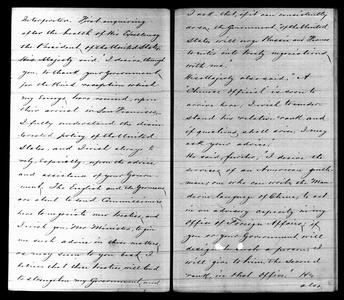 Interpreter. First enquiring
after the health of His Excellency
the President, of the United States,
His Majesty said "I desire, through
you, to thank your Government,
for the kind reception which
my Envoys have received, upon
their arrival in San Francisco.
I fully understand the disin-
terested policy of the United
States, and I wish always to
rely, hopefully, upon the advice
and assistance of your Govern-
ment. The English and the Germans
are about to send Commissioners
here to negotiate new treaties, and
I wish you, Mr. Minister, to give
me such advice in these matters,
as may seem to you best. I
believe that these treaties will tend
to strengthen my Government, and
I ask that, if it can consistently
do so, the Government of the United
States, will urge Russia and France
to enter into treaty negotiations
with me."
His Majesty also said; "A
Chinese Official is soon to
arrive here, I wish to under-
stand his relative rank and
if questions, shall arise, I may
ask your advice."
He said, further, "I desire the
services of an American gentle-
man, one who can write the Man-
darin language of China, to act
in an advisory capacity in my
Office of Foreign Affairs; if
you or your Government will
designate such a person, I
will give to him the second
rank, in that Office." He
also